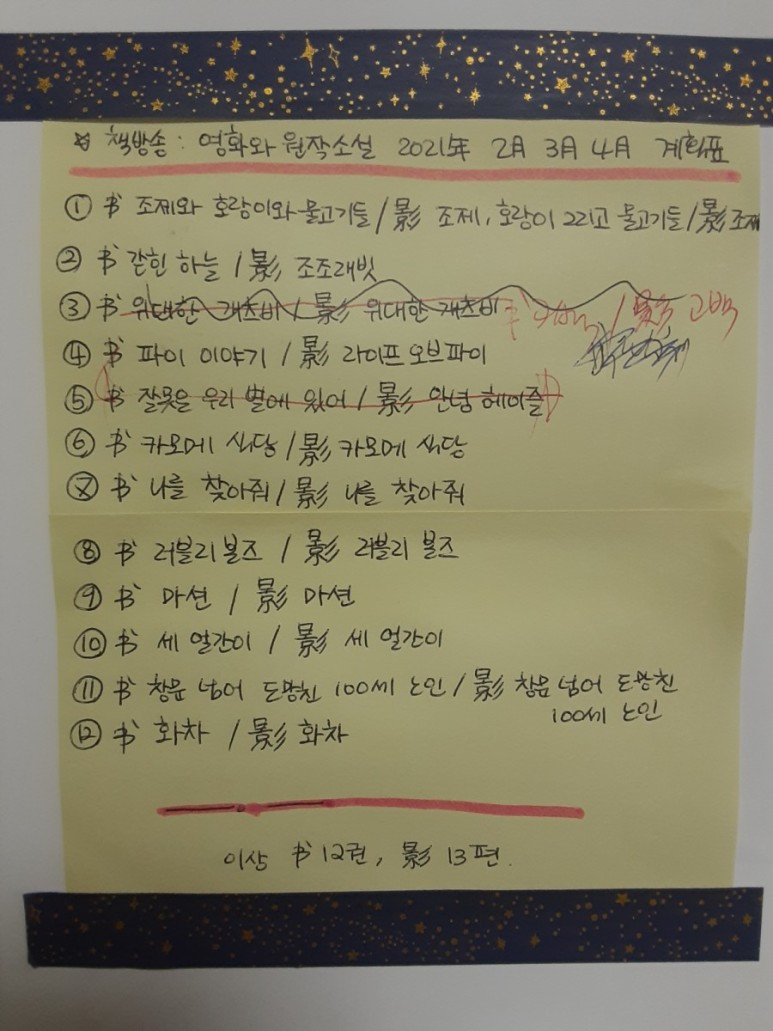 ☆ 책방송 : 영화와 원작소설 2021年 2月 3月 4月 계획표
① 书 조제와 호랑이와 물고기들 / 影 조제, 호랑이 그리고 물고기들 / 影 조제
② 书 갇힌 하늘 / 影 조조래빗
③ 书 위대한 개츠비 / 影 위대한 개츠비 书 / 影 고백
④ 书 파이 이야기 / 影 라이프오브파이
⑤ 书 잘못은 우리 별에 있어 / 影 안녕 헤이즐
⑥ 书 카모메 식당 / 影 카모메 식당
⑦ 书 나를 찾아줘 / 影 나를 찾아줘
⑧ 书 러블리 본즈 / 影 러블리 본즈
⑨ 书 마션 / 影 마션
⑩ 书 세 얼간이 / 影 세 얼간이
⑪ 书 창문 넘어 도망친 100세 노인 / 影 창문 넘어 도망친
100세 노인
⑫ 书 화차 / 影 화차
이상 书 12권, 影 13편.